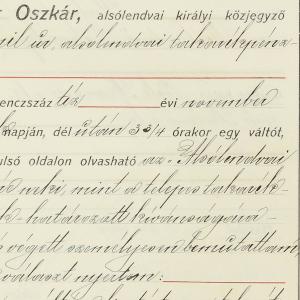 r Oszkár, alsólendvai királyi közjegyző
mil úr, alsólendvai takarékpénz
enczszáz tíz évi november
napján, dél után 3 3/4 órakor egy váltót,
ulsó oldalon olvasható az Alsólendvai
neki, mint a telepes takarék-
k határozott kivánságára
végett személyesen bemutattam,
választ nyertem: